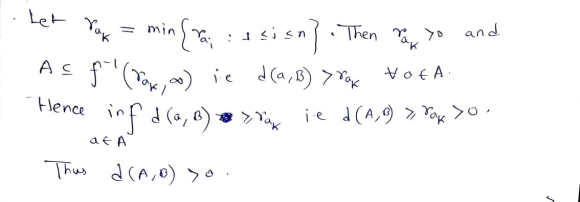 . Let r_{a_k} = min { r_{a_i} : 1 ≤ i ≤ n } . Then r_{a_k} > 0 and
A ⊆ f^{-1} (r_{a_k}, ∞) i.e d(a, B) > r_{a_k} ∀ a ∈ A.
Hence inf_{a ∈ A} d(a, B) ≥ r_{a_k} i.e d(A, B) ≥ r_{a_k} > 0 .
Thus d(A, B) > 0 .